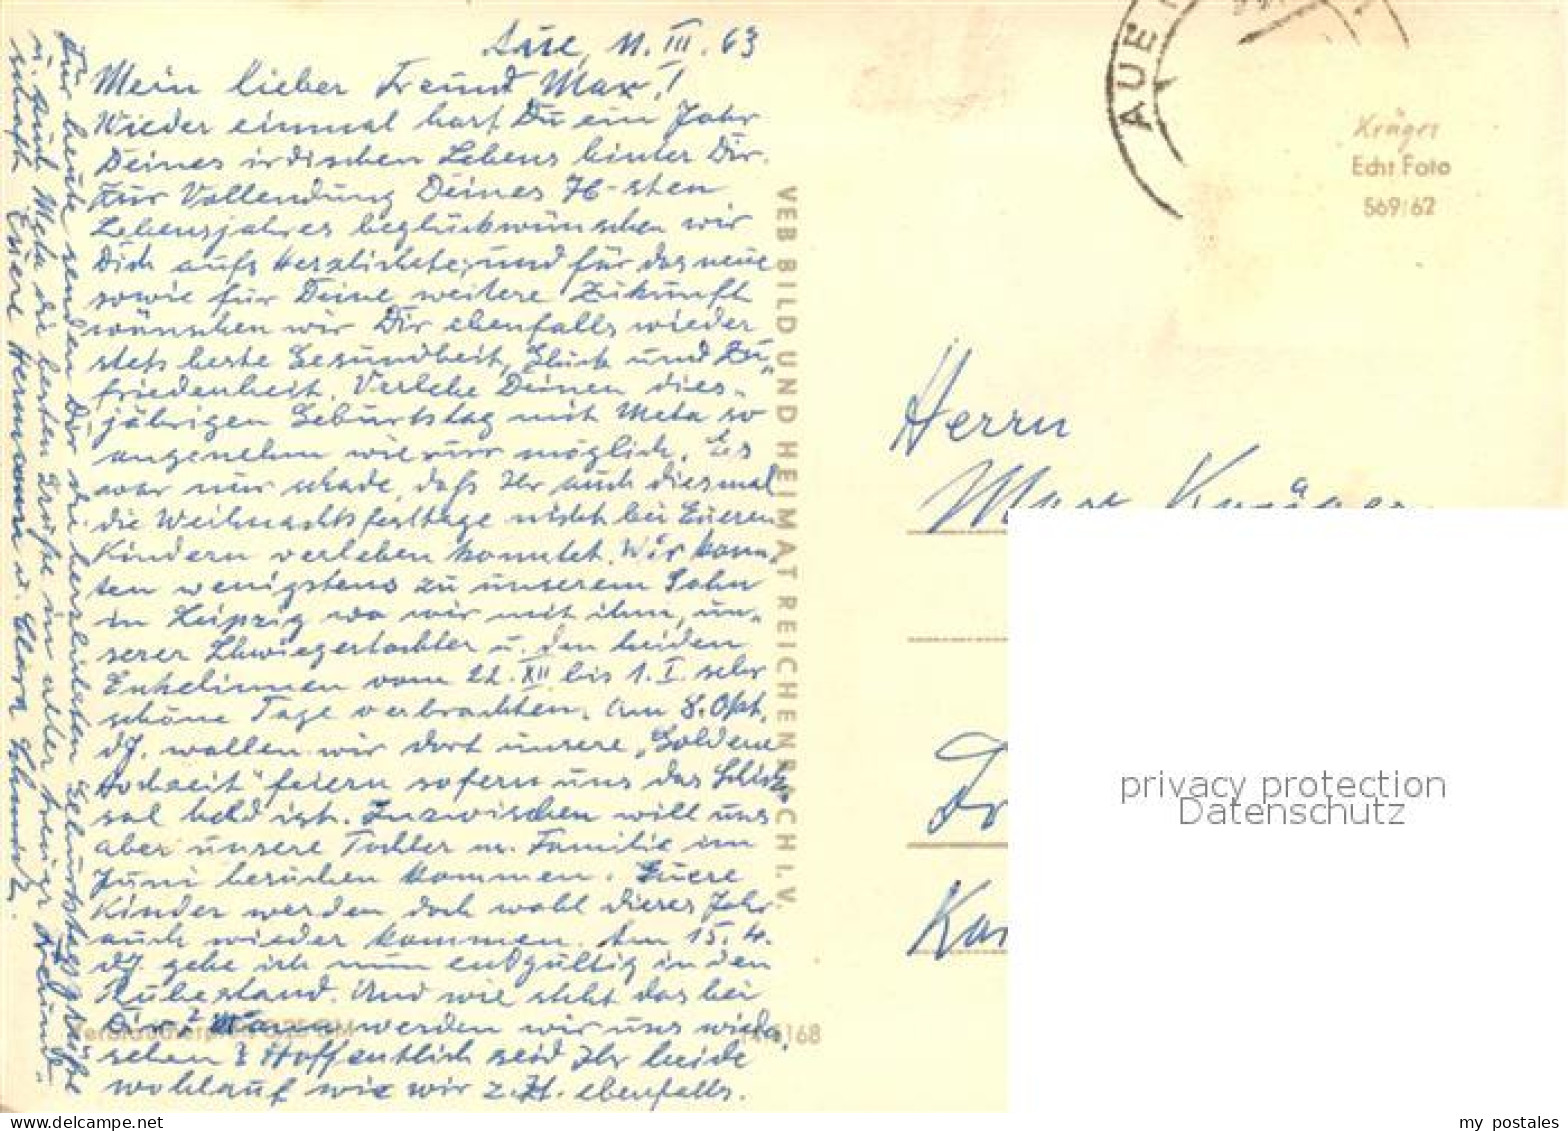 Aue, 11.III.63
Mein lieber Freund Max!
Wieder einmal hast Du ein Jahr
Deines irdischen Lebens hinter Dir.
Zur Vollendung Deines 76-sten
Lebensjahres beglückwünschen wir
Dich aufs Herzlichste, und für das neue
sowie für Deine weitere Zukunft
wünschen wir Dir ebenfalls wieder
stets beste Gesundheit, Glück und Zu„
friedenheit. Verlebe Deinen dies-
jährigen Geburtstag mit Meta so
angenehm wie nur möglich. Es
war nur schade, daß Ihr auch diesmal
die Weihnachtsfesttage nicht bei Eueren
Kindern verleben konntet. Wir konn„
ten wenigstens zu unserem Sohn
in Leipzig wo wir mit ihm, un„
serer Schwiegertochter u. den beiden
Enkelinnen vom 22. XII bis 1. I. sehr
schöne Tage verbrachten. Am 8. Okt.
dJ. wollen wir dort unsere „Goldene
Hochzeit" feiern sofern uns das Schick„
sal hold ist. Inzwischen will uns
aber unsere Tochter m. Familie im
Juni besuchen kommen. Euere
Kinder werden doch wohl dieses Jahr
auch wieder kommen. Am 15. 4.
dJ. gehe ich nun endgültig in den
Ruhestand. Und wie steht das bei
Dir? Wann werden wir uns wieder
sehen? Hoffentlich seid Ihr beide
wohlauf wie wir z. Zt. ebenfalls.
Für heute senden Dir die herzlichsten Geburtstagsgrüße
u. Euch Meta die besten Grüße in alter treuer Freund„
schaft Euere Hermann u. Clara Schmidt.
VEB BILD UND HEIMAT REICHENBACH I. V.
168
AUE
Krüger
Echt Foto
569/62
Herrn
Max Krüger
Dr
Kar
privacy protection
Datenschutz
www.delcampe.net
my_postales